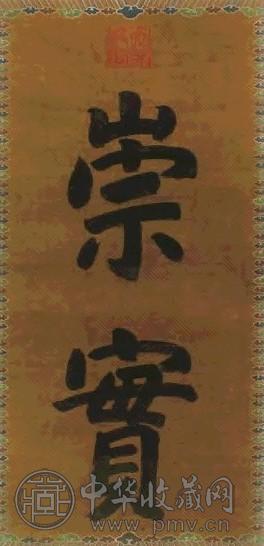 崇
實
中华收藏网
www.pmv.cn